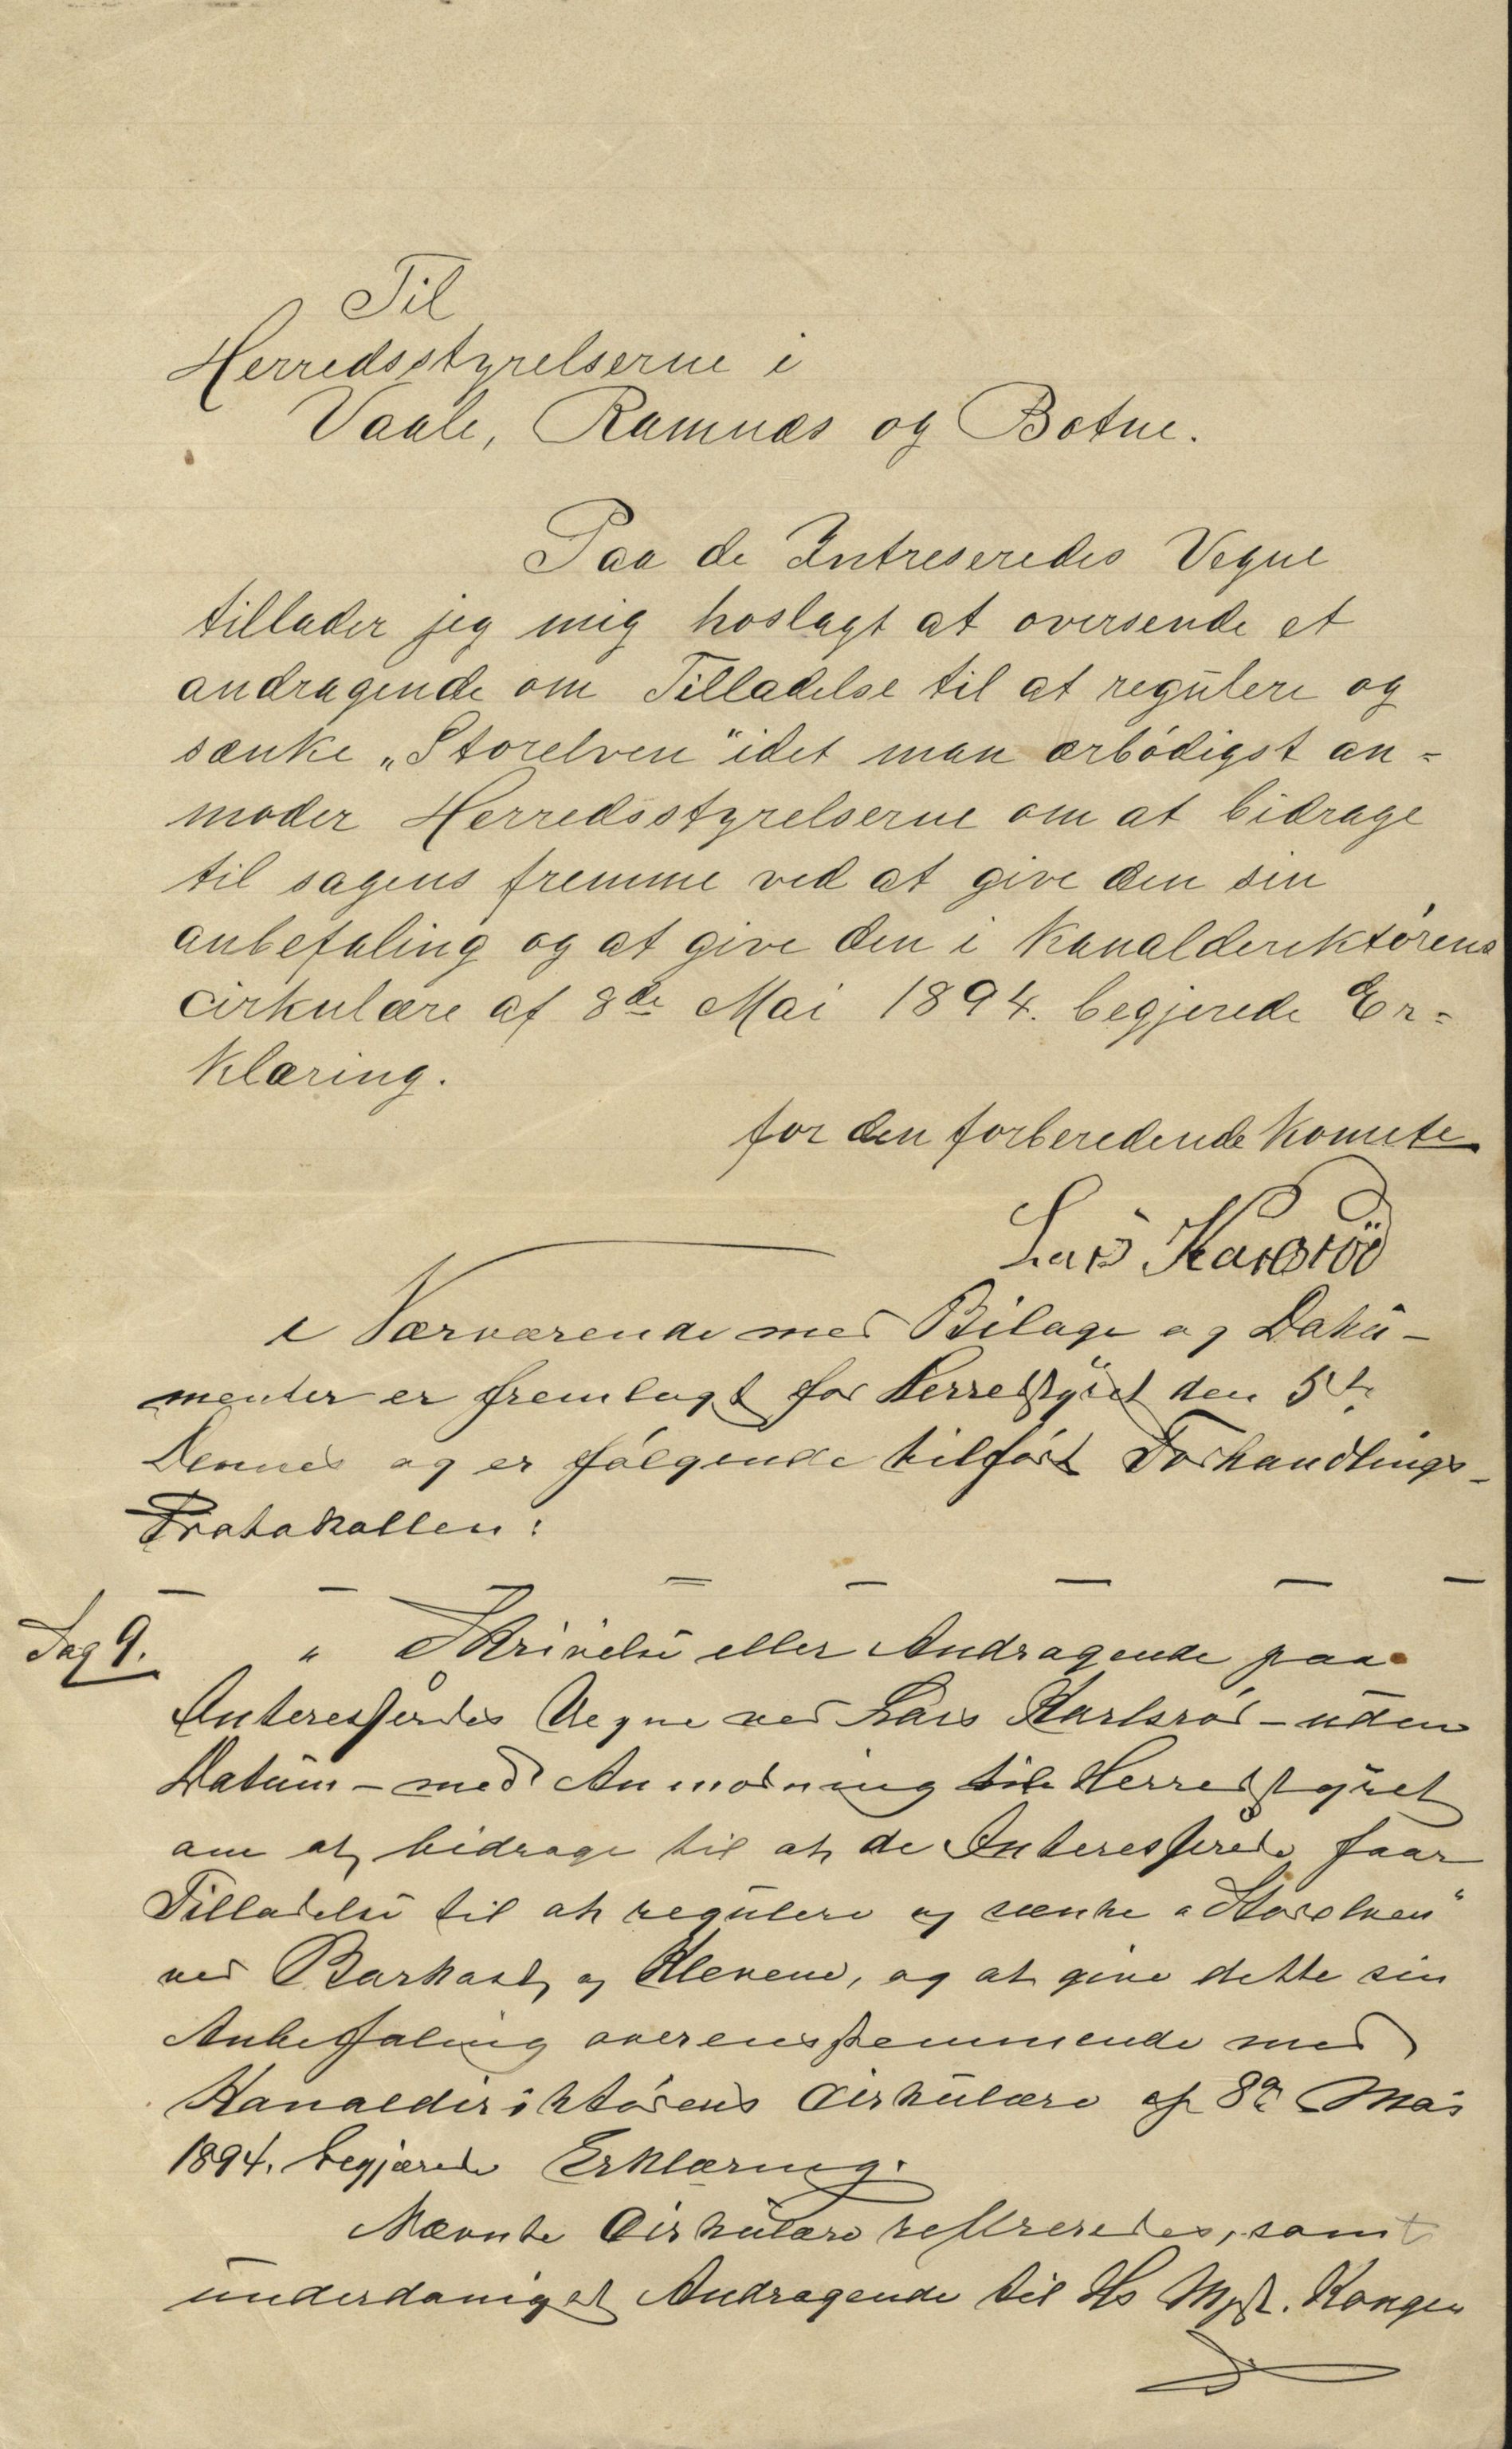 Til
Herredsstyrelserne i
Vaale, Ramnæs og Botne.
Paa de Intreseredes Vegne
tillader jeg mig hoslagt at oversende et
andragende om Tilladelse til at regulere og
sænke „Storelven" idet man ærbødigst an-
moder Herredsstyrelserne om at bidrage
til sagens fremme ved at give den sin
anbefaling og at give den i Kanalderiktørens
cirkulære af 8de Mai 1894. begjerede Er-
klæring.
for den forberedende Komite
Lars Karlsrød
Nærværende med Bilage og Doku-
menter er fremlagt for Herredstyret den 5te
Dennes og er følgende tilført Forhandlings-
Protokollen:
Sag 9. " Skrivelse eller Andragende paa
Interesseredes Vegne ved Lars Karlsrød - uden
Datum - med Anmodning til Herredstyret
om at bidrage til at de Interesserede faar
Tilladelse til at regulere og sænke „Storelven"
ved Barkost og Klevene, og at give dette sin
Anbefaling overensstemmende med
Kanaldirektørens Cirkulære af 8de Mai
1894. begjærede Erklæring.
Nævnte Cirkulære refereredes, samt
underdanigst Andragende til Hs Mjst. Kongen